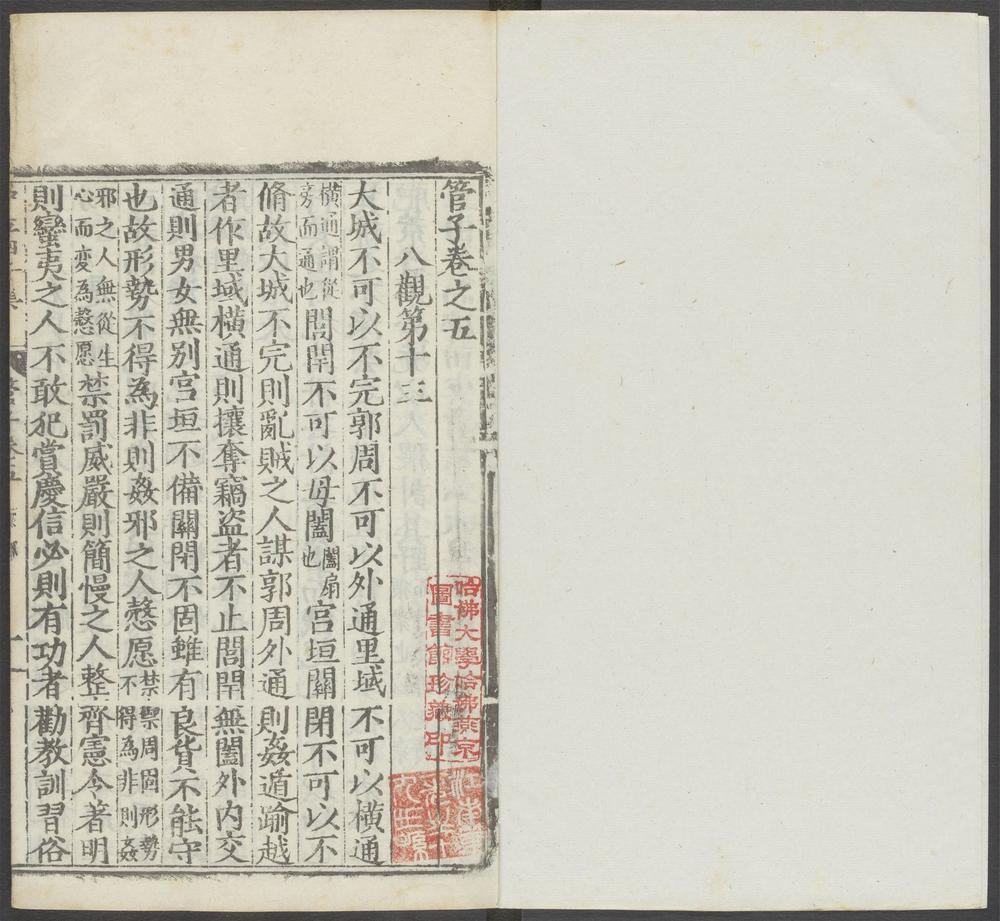 管子卷之五
八觀第十三
大城不可以不完郭周不可以外通里域不可以橫通
橫通謂從旁而通也閭閈不可以毋闔闔扇也宮垣關閉不可以不
脩故大城不完則亂賊之人謀郭周外通則姦遁踰越
者作里域橫通則攘奪竊盜者不止閭閈無闔外内交
通則男女無别宮垣不備關閉不固雖有良貨不能守
也故形勢不得為非則姦邪之人慤愿禁禦周固形勢不得為非則姦
邪之人無從生心而变為慤愿禁罰威嚴則簡慢之人整齊憲令著明
則蠻夷之人不敢犯賞慶信必則有功者勸教訓習俗
哈佛大學哈佛燕京
圖書館珍藏印